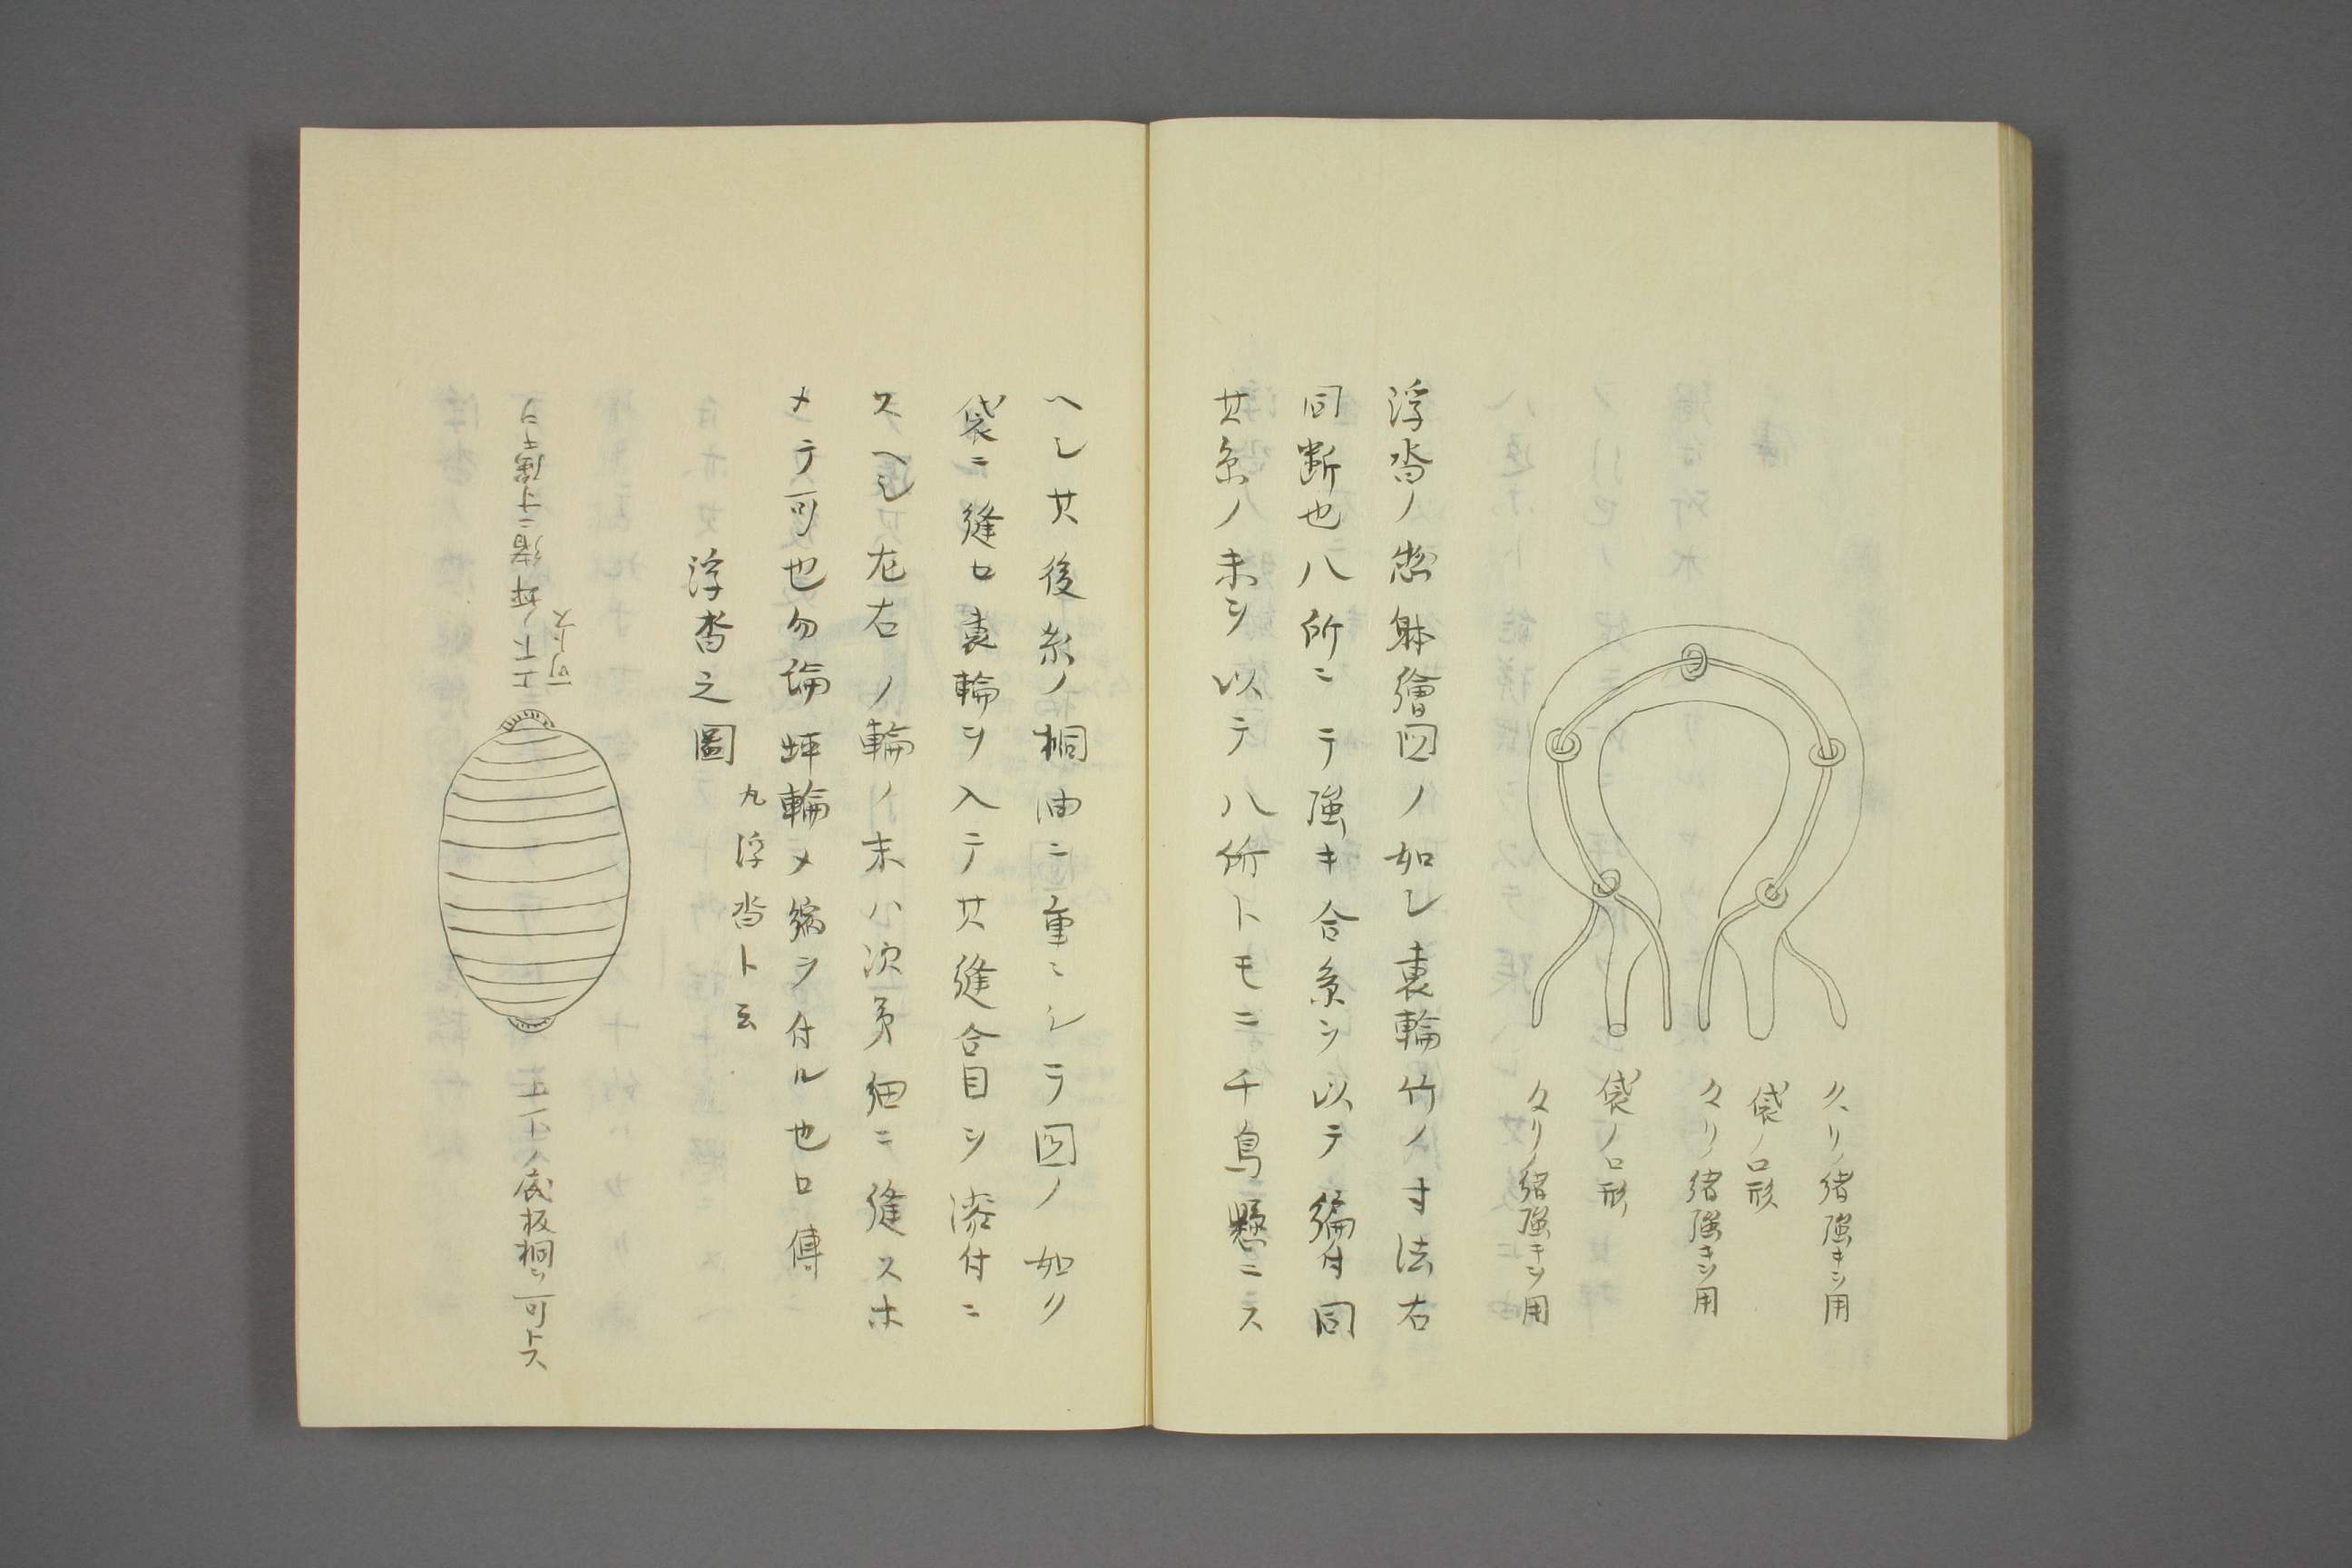 久リノ緒強キヲ用
袋ノ口形
久リノ緒強キヲ用
袋ノ口形
久リノ緒強キヲ用
浮沓ノ惣躰繪図ノ如シ裏輪竹ノ寸法右
同断也八所ニテ強キ合糸ヲ以テ編付同
其糸ノ末ヲ以テ八所トモニ千鳥懸ニス
ヘシ其後糸ノ桐油ニ重ミシテ図ノ如ク
袋ニ縫口裏輪ヲ入テ其縫合目ヲ漆付ニ
スヘシ左右ノ輪ノ末ハ次第細ニ縫スホ
メテ可也勿論坪輪メ編ヲ付ル也口傳
浮沓之圖
丸浮沓ト云
上下ノ坪緒二寸廣キヲ
可トス
上下ノ底板桐ヲ可トス